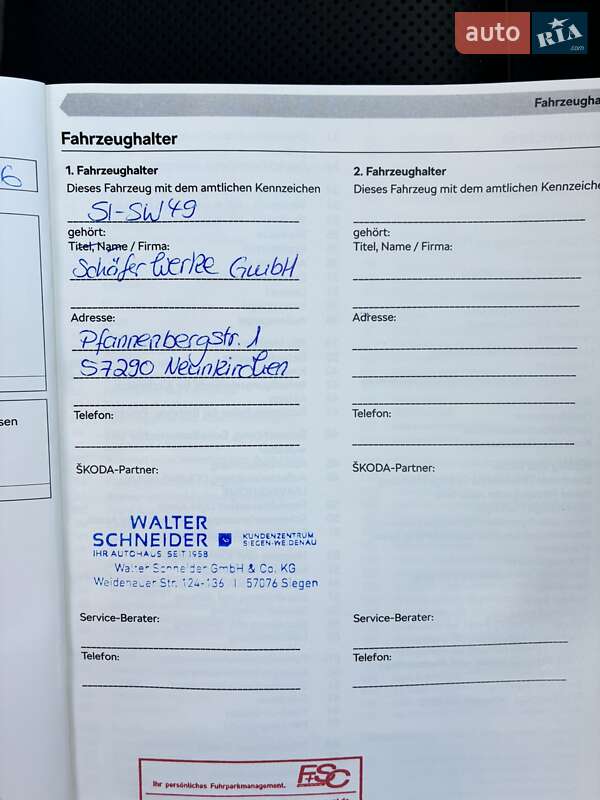 auto RIA.com
Fahrzeugha
Fahrzeughalter
6
1. Fahrzeughalter
Dieses Fahrzeug mit dem amtlichen Kennzeichen
SI-SW 49
gehört:
Titel, Name / Firma:
Schäfer Werke GmbH
Adresse:
Pfannenbergstr. 1
57290 Neunkirchen
Telefon:
ŠKODA-Partner:
WALTER
SCHNEIDER
IHR AUTOHAUS SEIT 1958
KUNDENZENTRUM
SIEGEN-WEIDENAU
Walter Schneider GmbH & Co. KG
Weidenauer Str. 124-136 | 57076 Siegen
Service-Berater:
Telefon:
2. Fahrzeughalter
Dieses Fahrzeug mit dem amtlichen Kennzeiche
gehört:
Titel, Name / Firma:
Adresse:
Telefon:
ŠKODA-Partner:
Service-Berater:
Telefon:
sen
Ihr persönliches Fuhrparkmanagement.
F+SC